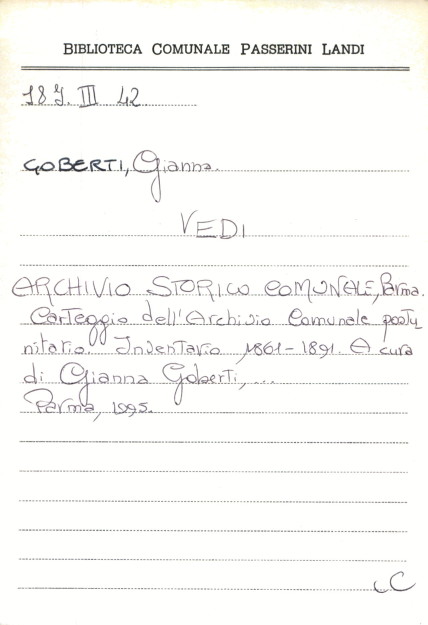 BIBLIOTECA COMUNALE PASSERINI LANDI
18 J. III 42
GOBERTI, Gianna.
VEDI
ARCHIVIO STORICO COMUNALE, Parma.
Carteggio dell'Archivio Comunale postu
nitario. Inventario, 1861-1891. A cura
di Gianna Goberti, ...
Parma, 1995.
C